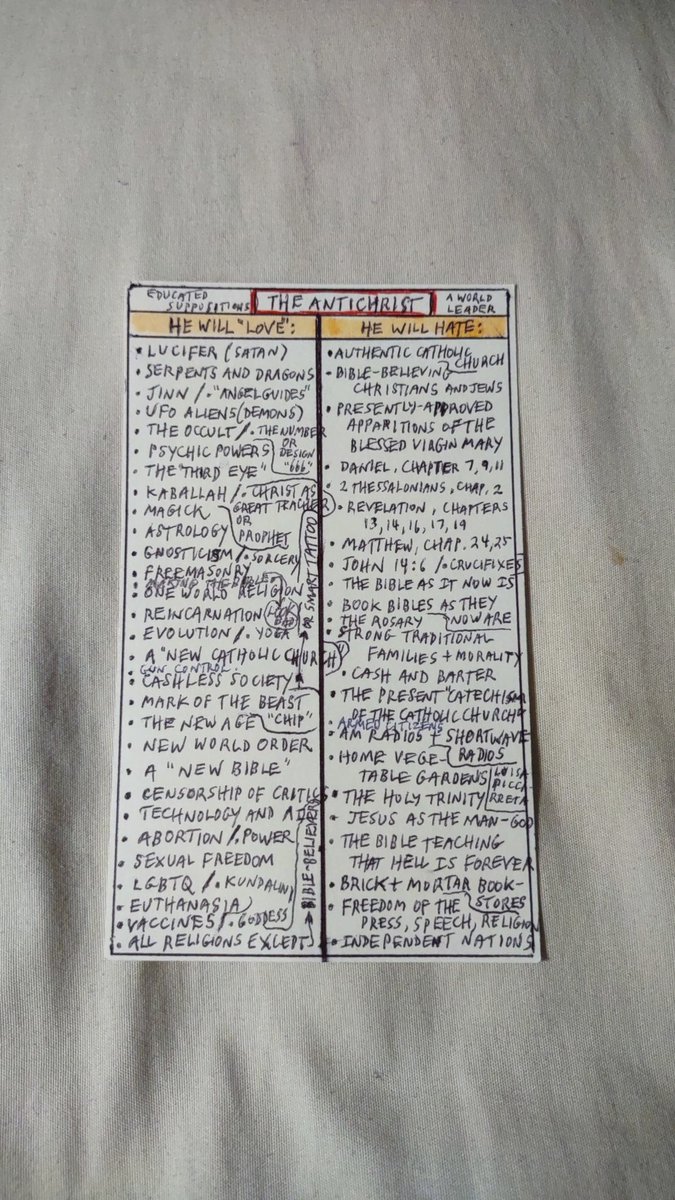 EDUCATED SUPPOSITIONS
THE ANTICHRIST
A WORLD LEADER
HE WILL "LOVE":
• LUCIFER (SATAN)
• SERPENTS AND DRAGONS
• JINN / • "ANGEL GUIDES"
• UFO ALIENS (DEMONS)
• THE OCCULT / • THE NUMBER
OR DESIGN "666"
• PSYCHIC POWERS
• THE "THIRD EYE"
• KABALLAH / • CHRIST AS
GREAT TEACHER
OR PROPHET
• MAGICK
• ASTROLOGY
• GNOSTICISM / • SORCERY
• FREEMASONRY
• ONE WORLD RELIGION
• REINCARNATION
• EVOLUTION / • YOGA
• A "NEW CATHOLIC CHURCH"
• GUN CONTROL
• CASHLESS SOCIETY
• MARK OF THE BEAST
"CHIP"
OR SMART TATTOO
• THE NEW AGE
• NEW WORLD ORDER
• A "NEW BIBLE"
• CENSORSHIP OF CRITICS
• TECHNOLOGY AND AI
• ABORTION / • POWER
• SEXUAL FREEDOM
• LGBTQ / • KUNDALINI
• EUTHANASIA
• VACCINES / • GODDESS
• ALL RELIGIONS EXCEPT
BIBLE-BELIEVERS
HE WILL HATE:
• AUTHENTIC CATHOLIC
CHURCH
• BIBLE-BELIEVING
CHRISTIANS AND JEWS
• PRESENTLY-APPROVED
APPARITIONS OF THE
BLESSED VIRGIN MARY
• DANIEL, CHAPTER 7, 9, 11
• 2 THESSALONIANS, CHAP. 2
• REVELATION, CHAPTERS
13, 14, 16, 17, 19
• MATTHEW, CHAP. 24, 25
• JOHN 14:6 / • CRUCIFIXES
• THE BIBLE AS IT NOW IS
• BOOK BIBLES AS THEY
NOW ARE
• THE ROSARY
• STRONG TRADITIONAL
FAMILIES + MORALITY
• CASH AND BARTER
• THE PRESENT "CATECHISM
OF THE CATHOLIC CHURCH"
• ARMED CITIZENS
• AM RADIOS + SHORTWAVE
RADIOS
• HOME VEGE-
TABLE GARDENS
LUISA
PICCA-
RRETA
• THE HOLY TRINITY
• JESUS AS THE MAN-GOD
• THE BIBLE TEACHING
THAT HELL IS FOREVER
• BRICK + MORTAR BOOK-
STORES
• FREEDOM OF THE
PRESS, SPEECH, RELIGION
• INDEPENDENT NATIONS